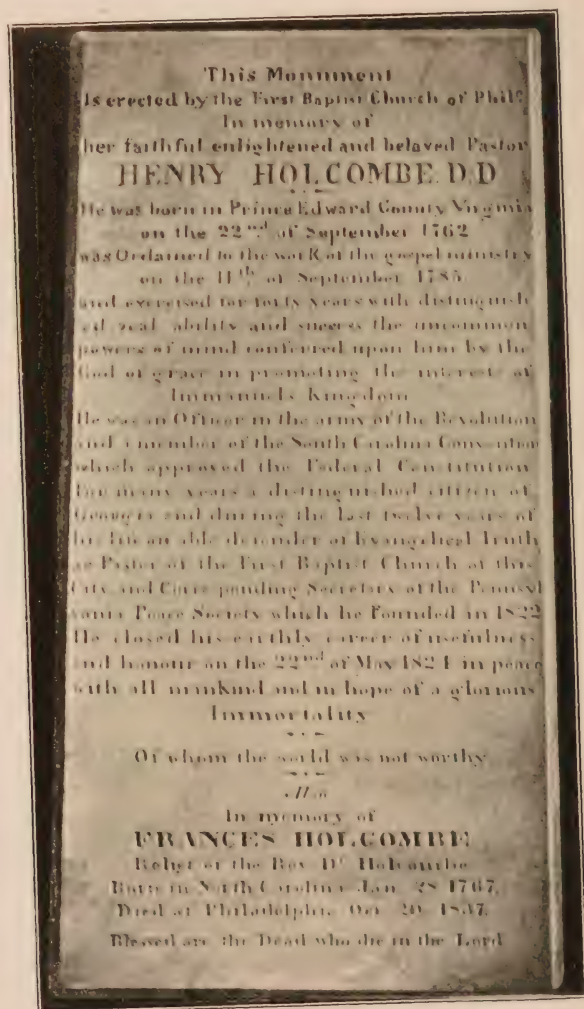 This Monument
Is erected by the First Baptist Church of Philᵃ
In memory of
her faithful enlightened and beloved Pastor
HENRY HOLCOMBE D.D
He was born in Prince Edward County Virginia
on the 22nd of September 1762
was Ordained to the work of the gospel ministry
on the 11th of September 1785
and exercised for forty years with distinguish
ed zeal ability and success the uncommon
powers of mind conferred upon him by the
God of grace in promoting the interests of
Immanuels Kingdom
He was an Officer in the army of the Revolution
and a member of the South Carolina Convention
which approved the Federal Constitution
For many years a distinguished citizen of
Georgia and during the last twelve years of
his life an able defender of Evangelical Truth
as Pastor of the First Baptist Church of this
City and Corresponding Secretary of the Pennsyl
vania Peace Society which he founded in 1822
He closed his earthly career of usefulness
and honour on the 22nd of May 1824 in peace
with all mankind and in hope of a glorious
Immortality
Of whom the world was not worthy
Also
In memory of
FRANCES HOLCOMBE
Relict of the Rev Dr Holcombe
Born in North Carolina Jan 28 1767.
Died at Philadelphia Oct 20 1837.
Blessed are the Dead who die in the Lord